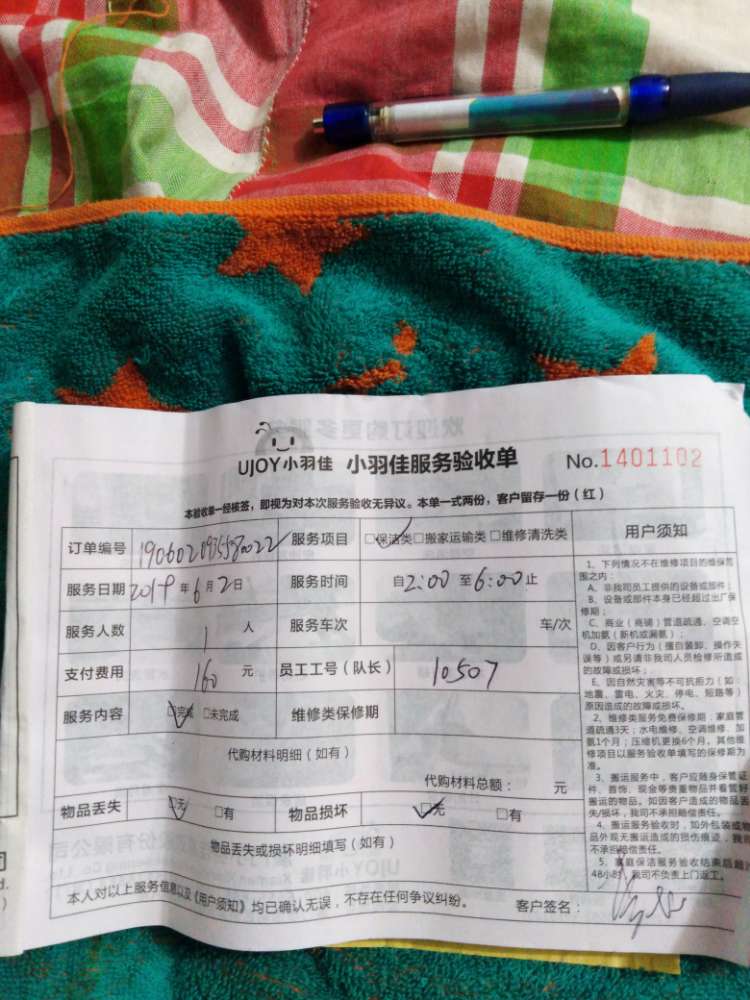 UJOY小羽佳 小羽佳服务验收单 No.1401102
本验收单一经核签，即视为对本次服务验收无异议。本单一式两份，客户留存一份（红）
订单编号 1906020935580022 服务项目 □保洁类□搬家运输类□维修清洗类
服务日期 2019年6月2日 服务时间 自2:00至6:00止
服务人数 1 人 服务车次 车/次
支付费用 160 元 员工工号（队长） 10507
服务内容 □完成 □未完成 维修类保修期
代购材料明细（如有）
代购材料总额： 元
物品丢失 □无 □有 物品损坏 □无 □有
物品丢失或损坏明细填写（如有）
本人对以上服务信息以及《用户须知》均已确认无误，不存在任何争议纠纷。 客户签名：
用户须知
1、下列情况不在维修项目的维保范
围之内：
A、非我司员工提供的设备或部件；
B、设备或部件本身已经超过出厂保
修期；
C、商业（商铺）管道疏通、空调空
机加氨（新机或漏氨）；
D、因客户行为（擅自装卸、操作失
误等）或另请非我司人员检修所造成
的故障或损坏；
E、因自然灾害等不可抗拒力（如：
地震、雷电、火灾、停电、短路等）
原因造成的故障或损坏。
2、维修类服务免费保修期：家庭管
道疏通3天；水电维修、空调维修、加
氨1个月；压缩机更换6个月。其他维
修项目以服务验收单填写的保修期为
准。
3、搬运服务中，客户应随身保管证
件、首饰、现金等贵重物品并看管好
搬运的物品。如因客户造成的物品丢
失/损坏，我司不承担赔偿责任。
4、搬运服务验收时，如外包装或物
品外观无搬运造成的损伤痕迹，我司
不承担赔偿责任。
5、家庭保洁服务验收结束后超过
48小时，我司不负责上门返工。